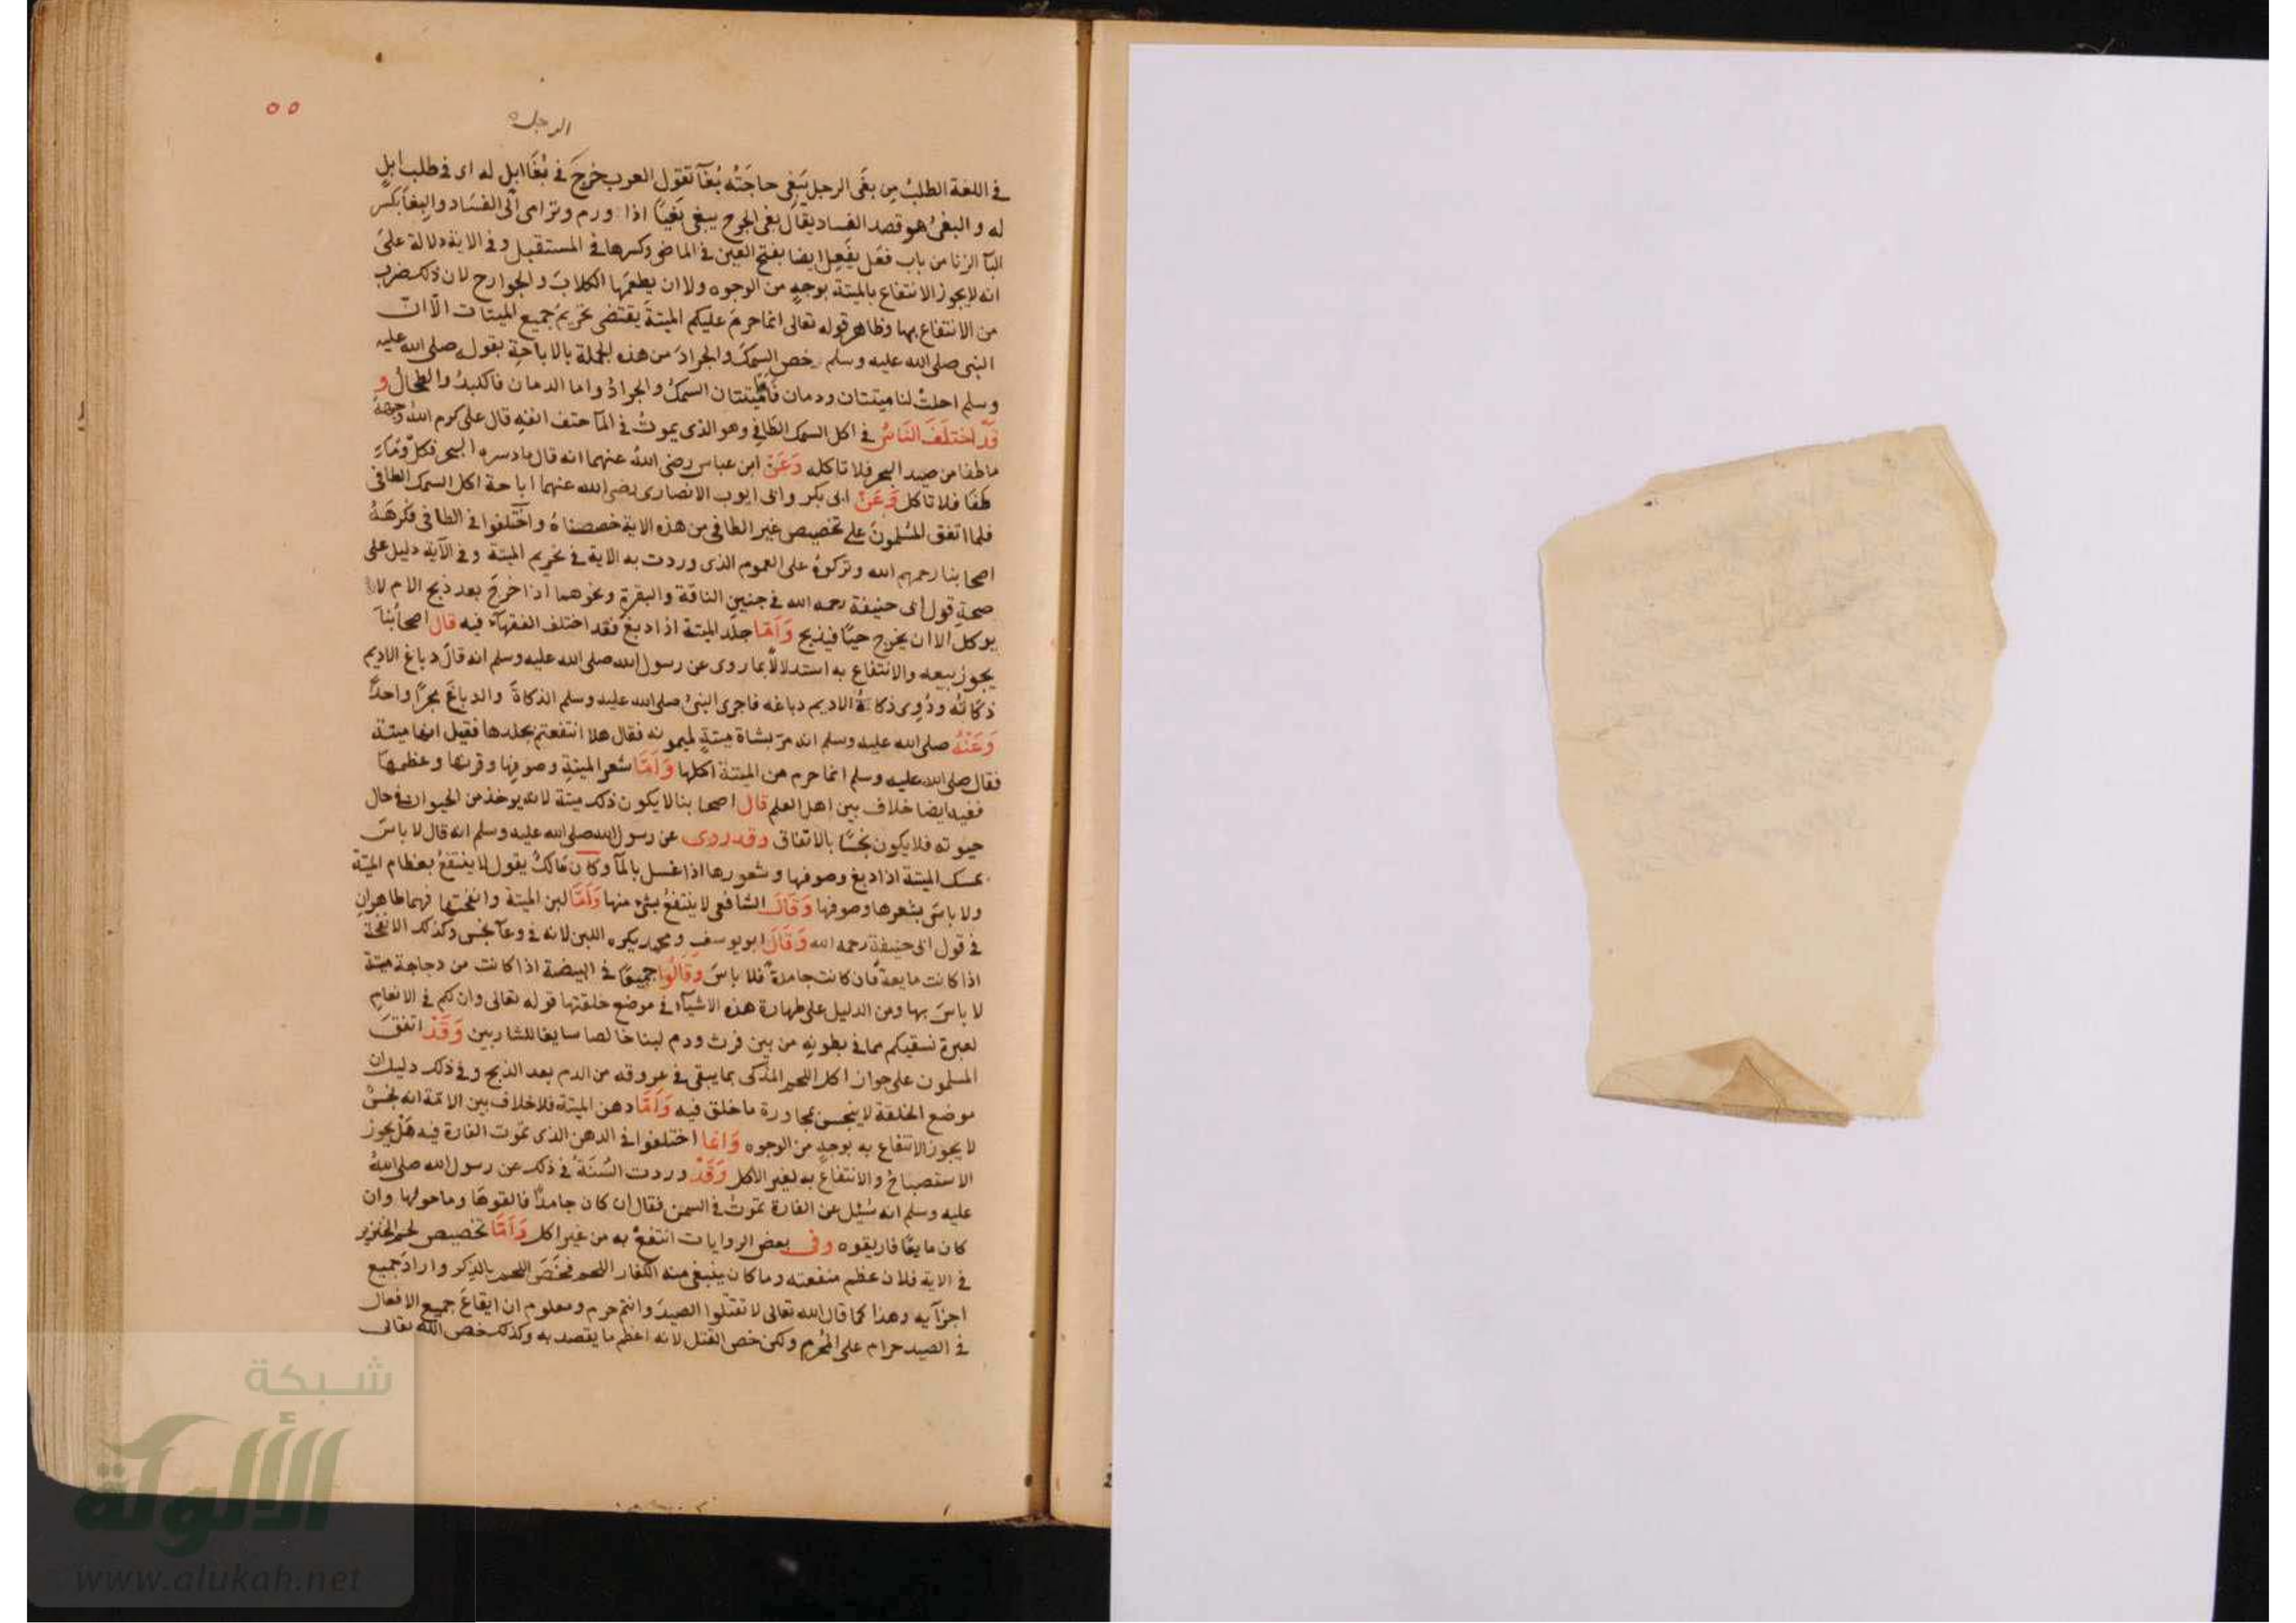 ٥٥
الرجل
في اللغة الطلبُ مِن بغَى الرجل يَبغِى حاجَتَه بُغَآ تقول العرب خرجَ في بُغَا ابل له اى في طلب ابل
له و البغىُ هو قصد الفساد يقال بغى الجرح يبغى بَغيًا اذا ورم وترامى الى الفساد والبِغَا بكسر
البآ الزنا من باب فعَل يفعِل ايضا بفتح العين في الماضى وكسرها في المستقبل وفي الاية دلالة على
انه لايجوز الانتفاع بالميتة بوجهٍ من الوجوه ولا ان يطعمها الكلابَ والجوارح لان ذلك ضرب
من الانتفاع بها وظاهر قوله تعالى انما حرمَ عليكم الميتةَ يقتضى تحريمُ جميع الميتات الّا انّ
النبى صلى الله عليه وسلم خص السمكَ والجرادَ من هذه الجملة بالاباحة بقوله صلى الله عليه
وسلم احلتْ لنا ميتتان ودمان فاَمّا الميتتان السمكُ والجرادُ واما الدمان فالكبدُ والطحالُ و
قَد اختلَفَ النَاسُ في اكل السمك الطافِى وهو الذى يموتُ في المآ حتف انفهِ قال على كرم اللهُ وجههُ
ما طفا من صيد البحر فلا تاكله وَعَنْ ابن عباس رضى اللهُ عنهما انه قال ما دسره البحر فكل وَمَا
طَفَا فلا تاكل وَعَنْ ابى بكر وابى ايوب الانصارى رضى الله عنهما اباحة اكل السمك الطافى
فلما اتفق المسُلمونَ على تخصيص غير الطافى من هذه الاية خصصناهُ واختَلفوا في الطافى فكَرِهَهُ
اصحابنا رحمهم الله وتركوهُ على العموم الذى وردت به الاية في تحريم الميتة وفي الآية دليل على
صحةِ قول ابى حنيفة رحمه الله في جنين الناقة والبقرة ونحوهما اذا خرجَ بعد ذبح الام لا
يوكل الا ان يخرج حيًا فيذبح وَاَمَّا جلد الميتة اذا دبغَ فقد اختلف الفقهآء فيه قال اصحابُنا
يجوز بيعه والانتفاع به استدلالًا بما روى عن رسول الله صلى الله عليه وسلم انه قال دباغ الاديم
ذكاتُه ورُوِى ذكاةُ الاديم دباغه فاجرى النبىُ صلى الله عليه وسلم الذكاةَ والدباغَ مجرًا واحدًا
وَعَنْهُ صلى الله عليه وسلم انه مرّ بشاة ميتةٍ لميمونه فقال هلا انتفعتم بجلدها فقيل انها ميتة
فقال صلى الله عليه وسلم انما حرم من الميتة اكلها وَاَمَّا شعر الميتةِ وصوفِها وقرنُها وعظمُها
ففيه ايضا خلاف بين اهل العلم قال اصحابنا لا يكون ذلك ميتة لانه يوخذ من الحيوان في حال
حيوته فلا يكون نجسًا بالاتفاق وقد روى عن رسول الله صلى الله عليه وسلم انه قال لا باسَ
بمسك الميتة اذا دبغ وصوفها وشعورها اذا غسل بالمآ وكانَ مالكُ يقول لا ينتفعُ بعظام الميتة
ولا باسَ بشعرها وصوفها وَقَالَ الشافعى لا ينتفعُ بشئ منها وَاَمَّا لبن الميتة وانفحتها فهما طاهرانِ
في قول ابى حنيفة رحمه الله وَقَالَ ابو يوسف ومحمد يكره اللبن لانه في وعآ نجس وكذلك الانفحة
اذا كانت مايعةً فان كانت جامدةً فلا باسَ وقَالُوا جميعًا في البيضة اذا كانت من دجاجة ميتة
لا باسَ بها ومن الدليل على طهارة هذه الاشيآء في موضع خلقتها قوله تعالى وان لكم في الانعامِ
لعبرة نسقيكم مما في بطونهِ من بين فرث ودم لبنا خالصا سايغا للشاربين وَقَدْ اتفقَ
المسلمون على جواز اكل اللحم المذكى بما يبقى في عروقه من الدم بعد الذبح وفي ذلك دليل ان
موضع الخلقة لا ينجس بمجاورة ما خلق فيه وَاَمَّا دهن الميتة فلا خلاف بين الائمة انه نجسٌ
لا يجوز الانتفاع به بوجهٍ من الوجوه وَانما اختلفوا في الدهن الذى تموت الفارة فيه هَلْ يجوز
الاستصباحُ والانتفاعُ به لغير الاكل وَقَدْ وردت السُنَةُ في ذلك عن رسول الله صلى اللهُ
عليه وسلم انه سُئِل عن الفارة تموتُ في السمن فقال ان كان جامدًا فالقوهَا وماحولها وان
كان مايعًا فاريقوه وفى بعض الروايات انتفعْ به من غير اكل وَاَمَّا تخصيص لحم الخنزير
في الاية فلان عظم منفعته وما كان ينبغى منه الكفار اللحم فخَصَ اللحم بالذِكر واراد جميع
اجزآيه وهذا كما قال الله تعالى لا تقتلوا الصيدَ وانتم حرم ومعلوم ان ايقاعَ جميع الافعال
في الصيد حرام على المُحْرِم ولكن خص القتل لانه اعظم ما يقصد به وكذلك خص الله تعالى
شبكة
الألوكة
www.alukah.net